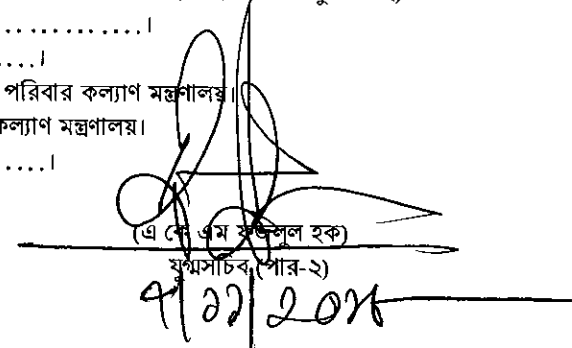 ................।
....।
পরিবার কল্যাণ মন্ত্রণালয়।
কল্যাণ মন্ত্রণালয়।
....।
(এ কে এম ফজলুল হক)
যুগ্মসচিব (পার-২)